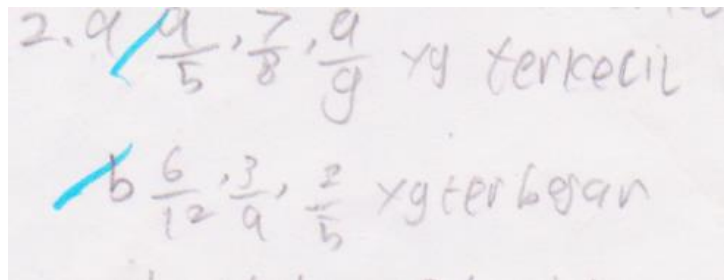 2. a 9/5, 7/8, 9/9 yg terkecil
b 6/12, 3/9, 2/5 yg terbesar